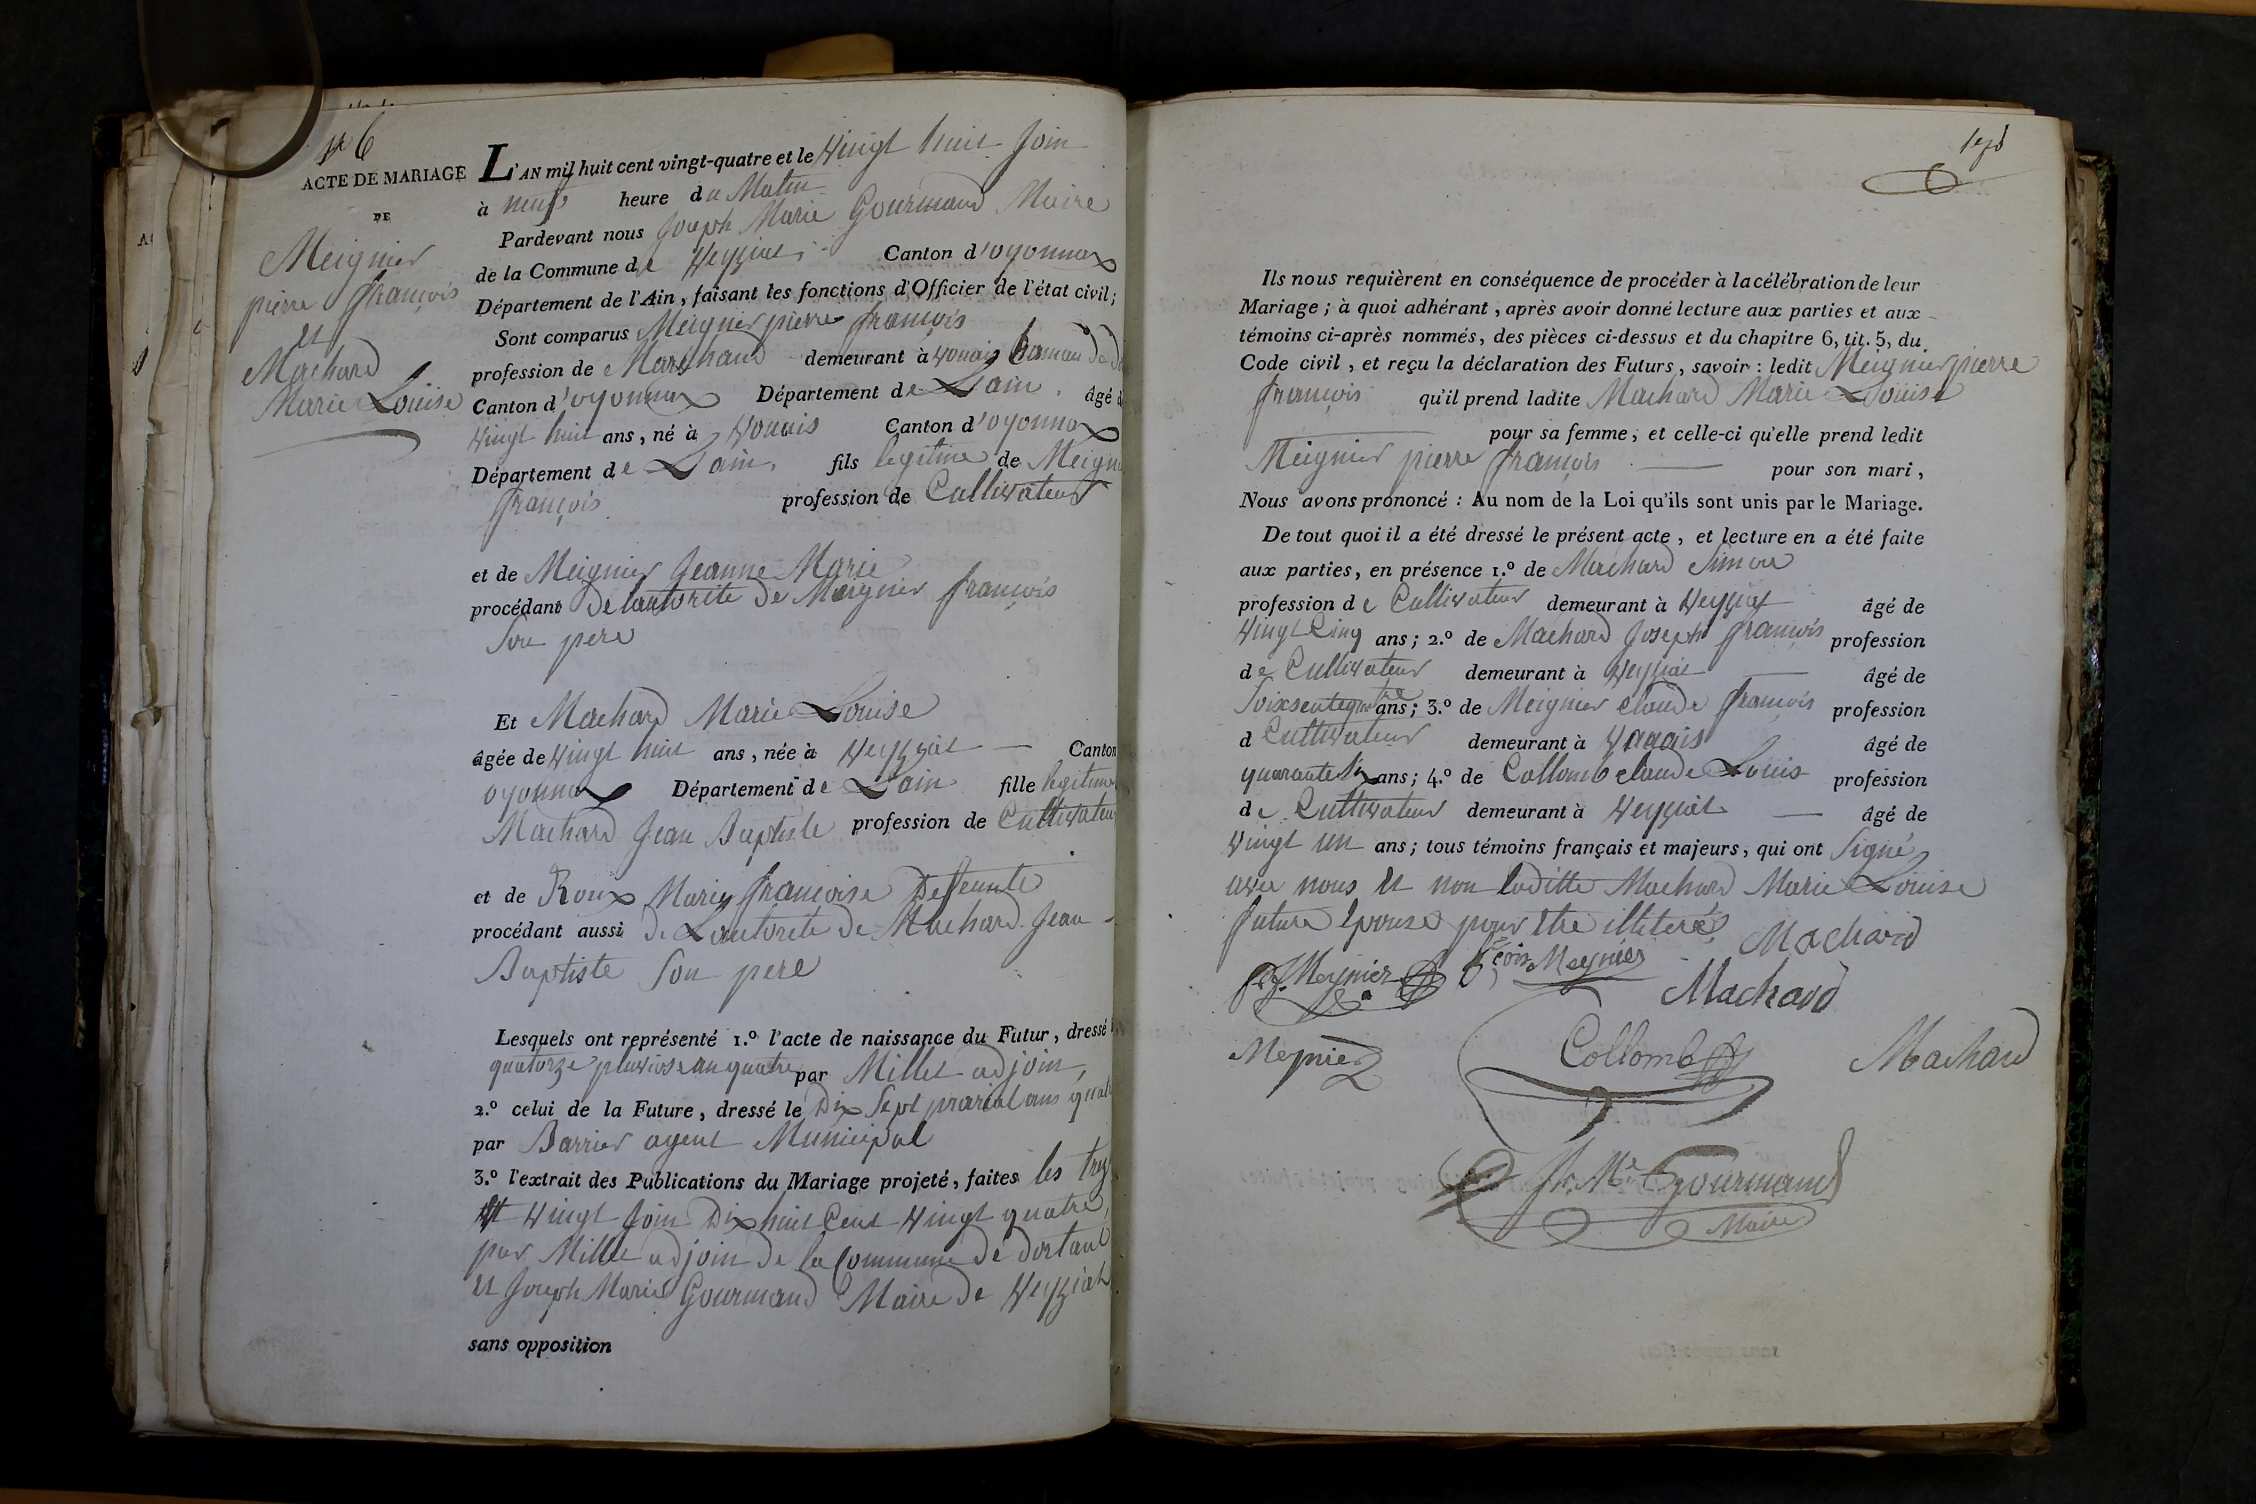 N 6
ACTE DE MARIAGE
DE
Meignier
pierre françois
et
Machard
Marie Louise
L'AN mil huit cent vingt-quatre et le Vingt huit Join
à neuf heure du Matin
Pardevant nous Joseph Marie Gourmand Maire
de la Commune de Veyziat, Canton d'oyonnax
Département de l'Ain, faisant les fonctions d'Officier de l'état civil;
Sont comparus Meignier pierre françois
profession de Maréchaud demeurant à vouais hamau de
Canton d'oyonnax Département de Lain, âgé d
Vingt huit ans, né à Vouais Canton d'oyonnax
Département de Lain, fils legitime de Meigni
françois profession de Cultivateur
et de Meignier Jeanne Marie
procédant de lautorité de Meignier françois
Son pere
Et Machard Marie Louise
âgée de Vingt huit ans, née à Veyziat Canton
oyonnax Département de Lain fille legitime
Machard Jean Baptiste profession de Cultivateur
et de Roux Marie françoise Deffeunte
procédant aussi de Lautorité de Machard Jean
Baptiste Son pere
Lesquels ont représenté 1.º l'acte de naissance du Futur, dressé l
quatorze pluviose an quatre par Millet adjoin,
2.º celui de la Future, dressé le Dix Sept prarial ans quat
par Barrier agent Municipal
3.º l'extrait des Publications du Mariage projeté, faites les trez
et Vingt Join Dix huit Cent Vingt quatre,
par Millet adjoin de la Commune de dortant
et Joseph Marie Gourmand Maire de Veyziat
sans opposition
Ils nous requièrent en conséquence de procéder à la célébration de leur
Mariage; à quoi adhérant, après avoir donné lecture aux parties et aux
témoins ci-après nommés, des pièces ci-dessus et du chapitre 6, tit. 5, du
Code civil, et reçu la déclaration des Futurs, savoir: ledit Meignier pierre
françois qu'il prend ladite Machard Marie Louise
pour sa femme, et celle-ci qu'elle prend ledit
Meignier pierre françois pour son mari,
Nous avons prononcé: Au nom de la Loi qu'ils sont unis par le Mariage.
De tout quoi il a été dressé le présent acte, et lecture en a été faite
aux parties, en présence 1.º de Machard Simon
profession de Cultivateur demeurant à Veyziat âgé de
Vingt Cinq ans; 2.º de Machard Joseph françois profession
de Cultivateur demeurant à Veyziat âgé de
Soixsente quatre ans; 3.º de Meignier claude françois profession
d Cultivateur demeurant à Vouais âgé de
quarante Six ans; 4.º de Collomb claude Louis profession
de Cultivateur demeurant à Veyziat âgé de
Vingt un ans; tous témoins français et majeurs, qui ont Signé
avec nous et non laditte Machard Marie Louise
future Epouse pour etre illiteré
Machard
Meynier
f.çois Meynier
Machard
Meynier
Collomb
Machard
Jh. Mie Gourmand
Maire